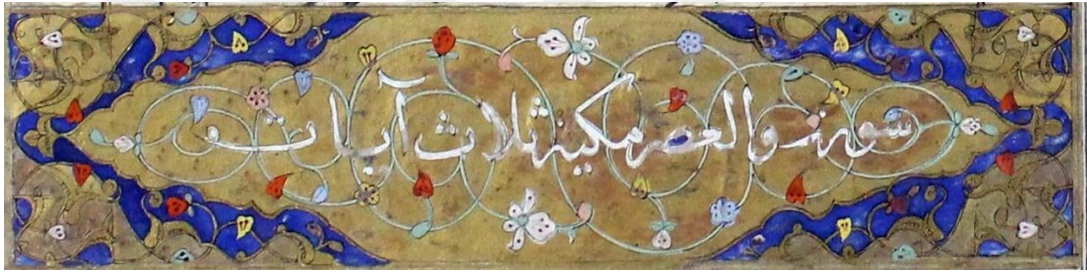 سورة والعصر مكية ثلاث آيات و